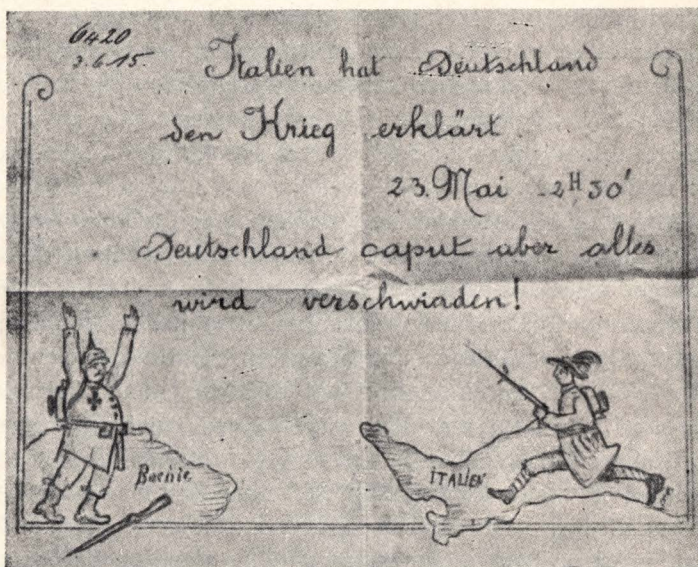 6420
3.6.15.
Italien hat Deutschland
den Krieg erklärt.
23. Mai 2H 30'
Deutschland caput aber alles
wird verschwinden!
Bochie
ITALIEN